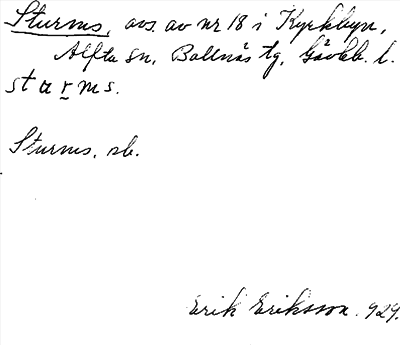 Sturms, avs. av nr 18 i Kyrkbyn,
Alfta sn, Bollnäs tg, Gävleb. l.
starms.
Sturms, sb.
Erik Eriksson. 929.